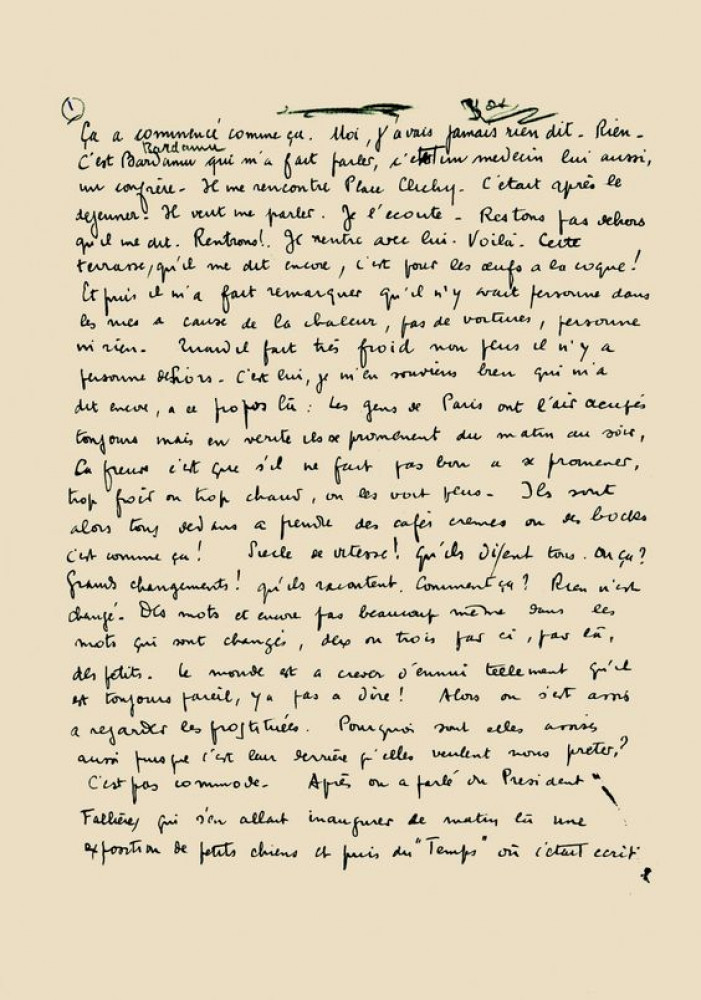 1
Ça a commencé comme ça. Moi, j'avais jamais rien dit. Rien.
Bardamu
C'est Bardamu qui m'a fait parler, c'est un medecin lui aussi,
un confrère. Il me rencontre Place Clichy. C'était après le
dejeuner. Il veut me parler. Je l'écoute. Restons pas dehors
qu'il me dit. Rentrons! Je rentre avec lui. Voilà. Cette
terrasse, qu'il me dit encore, c'est pour les œufs a la coque!
Et puis il m'a fait remarquer qu'il n'y avait personne dans
les rues a cause de la chaleur, pas de voitures, personne
ni rien. Quand il fait très froid non plus il n'y a
personne dehors. C'est lui, je m'en souviens bien qui m'a
dit encore, a ce propos là : Les gens de Paris ont l'air occupés
toujours mais en verité ils se promènent du matin au soir,
La preuve c'est que s'il ne fait pas bon a se promener,
trop froid ou trop chaud, on les voit plus. Ils sont
alors tous dedans a prendre des cafés cremes ou des bocks
C'est comme ça! Siecle de vitesse! qu'ils disent tous. Où ça?
Grands changements! qu'ils racontent. Comment ça? Rien n'est
changé. Des mots et encore pas beaucoup même dans les
mots qui sont changés, deux ou trois par ci, par là,
des petits. Le monde est a crever d'ennui tellement qu'il
est toujours pareil, y a pas a dire! Alors on s'est assis
a regarder les prostituées. Pourquoi sont elles assises
aussi puisque c'est leur derrière qu'elles veulent nous preter?
C'est pas commode. Après on a parlé du President
Fallières qui s'en allait inaugurer ce matin là une
exposition de petits chiens et puis du "Temps" où c'était ecrit